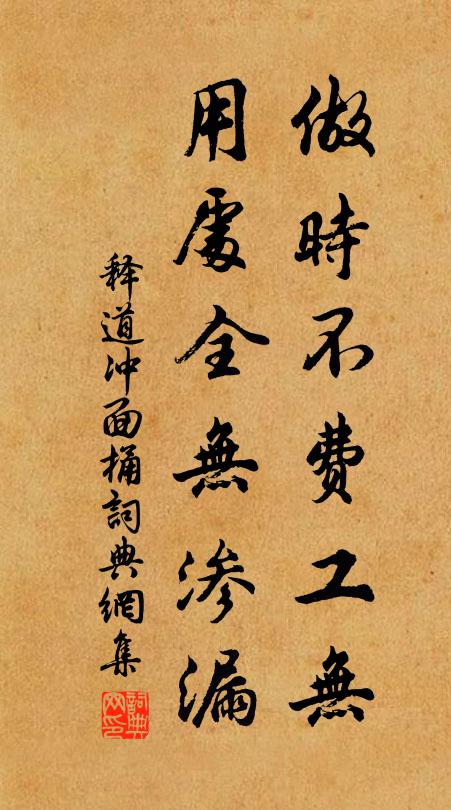 做時不費工無
用處全無滲漏
释道冲面桶詞典網集
詞典網印